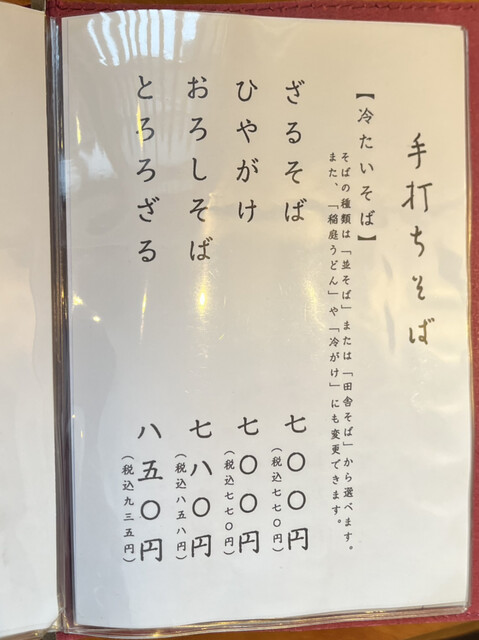 手打ちそば
【冷たいそば】
そばの種類は「並そば」または「田舎そば」から選べます。
また、「稲庭うどん」や「冷がけ」にも変更できます。
ざるそば 七〇〇円
(税込七七〇円)
ひやがけ 七〇〇円
(税込七七〇円)
おろしそば 七八〇円
(税込八五八円)
とろろざる 八五〇円
(税込九三五円)